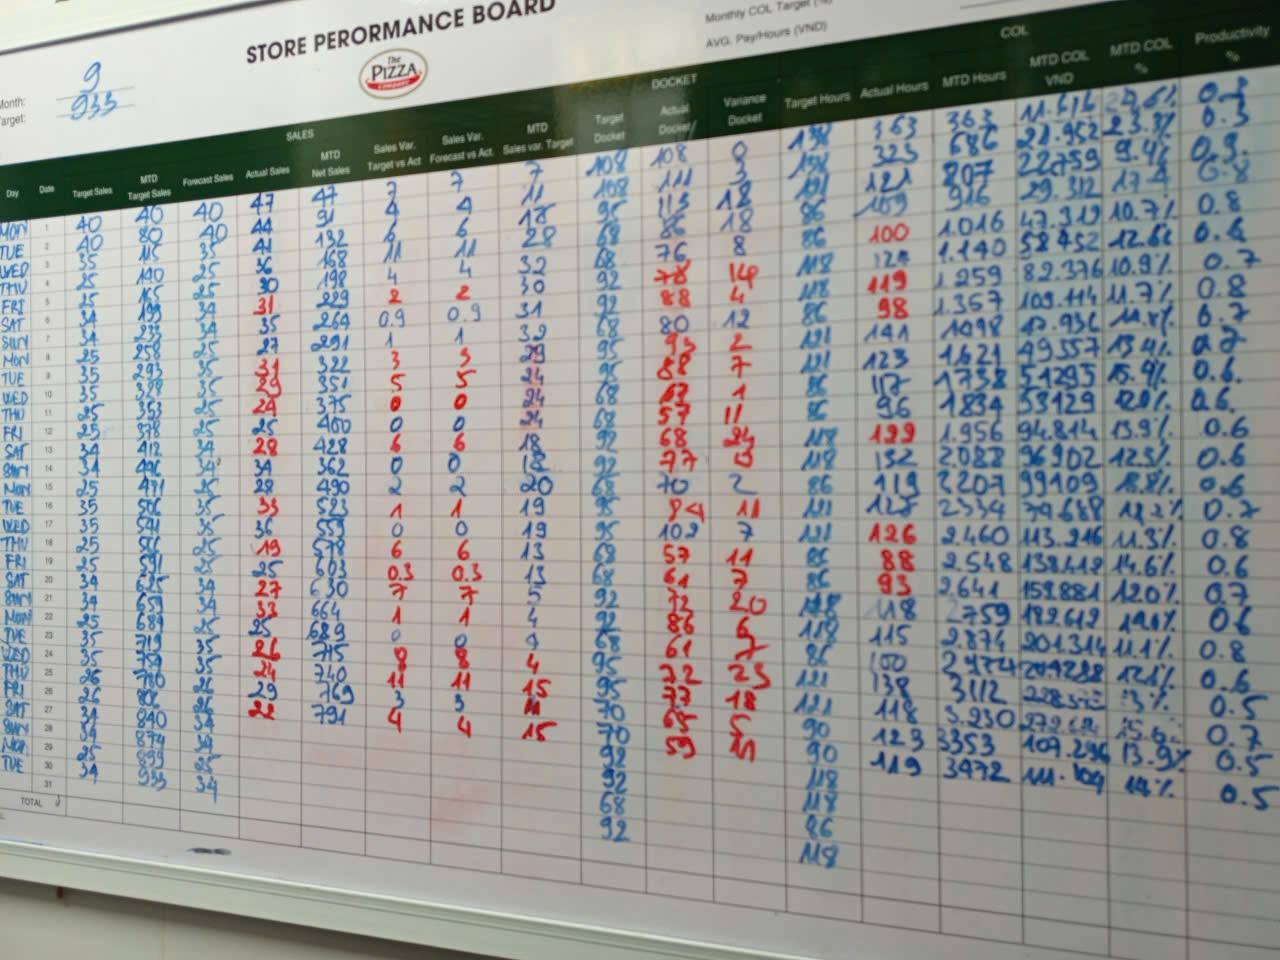 STORE PERORMANCE BOARD
The PIZZA COMPANY
Month: 9
Target: 933
Monthly COL Target (%)
AVG. Pay/Hours (VND)
SALES DOCKET COL
Day Date Target Sales MTD Target Sales Forecast Sales Actual Sales MTD Net Sales Sales Var. Target vs Act Sales Var. Forecast vs Act. MTD Sales var. Target Target Docket Actual Docket/ Variance Docket Target Hours Actual Hours MTD Hours MTD COL VND MTD COL % Productivity %
MON 1 40 40 40 47 47 7 7 7 108 108 0 136 363 363 11.616
TUE 2 40 80 40 44 91 4 4 11 108 111 3 136 323 686 21.952 23.8% 0.3
WED 3 35 115 35 41 132 6 6 18 95 113 18 121 121 807 22759 9.4% 0.9
THU 4 25 140 25 36 168 11 11 28 68 86 18 86 109 916 29.312 0.8
FRI 5 25 165 25 30 198 4 4 32 68 76 8 86 100 1.016 47.319 10.7% 0.8
SAT 6 34 199 34 31 229 2 2 30 92 78 14 118 124 1.140 58452 12.6% 0.6
SUN 7 34 233 34 35 264 0.9 0.9 31 92 88 4 118 119 1259 82.376 10.9% 0.7
MON 8 25 258 25 27 291 1 1 32 68 80 12 86 98 1.357 109.114 11.7% 0.8
TUE 9 35 293 35 31 322 3 3 29 95 93 2 121 141 1498 0.7
WED 10 35 328 35 29 351 5 5 24 95 88 7 121 123 1621 49557 13.4% 0.7
THU 11 25 353 25 24 375 0 0 24 68 67 1 86 117 1738 51295 15.9% 0.6
FRI 12 25 378 25 25 400 0 0 24 68 57 11 86 96 1834 53129 0.6
SAT 13 34 412 34 28 428 6 6 18 92 68 24 118 122 1.956 94.814 13.9% 0.6
SUN 14 34 446 34 34 362 0 0 18 92 77 118 132 2088 96902 12.3% 0.6
MON 15 25 471 25 28 490 2 2 20 68 70 2 86 119 2207 99109 0.6
TUE 16 35 506 35 33 523 1 1 19 95 84 11 121 127 2334 0.7
WED 17 35 541 35 36 559 0 0 19 95 102 7 121 126 2.460 113.216 11.3% 0.8
THU 18 25 566 25 19 578 6 6 13 68 57 11 86 88 2.548 138.418 14.6% 0.6
FRI 19 25 591 25 25 603 0.3 0.3 13 68 61 7 86 93 2,641 12.0% 0.7
SAT 20 34 625 34 27 630 7 7 5 92 72 20 118 118 2759 182.612 0.6
SUN 21 34 659 34 33 664 1 1 4 92 86 6 118 115 2.874 201.314 11.1% 0.8
MON 22 25 684 25 25 689 0 0 4 68 61 7 86 100 0.6
TUE 23 35 719 35 26 715 8 8 4 95 72 23 121 138 3112 0.5
WED 24 35 754 35 24 740 11 11 15 95 77 18 121 118 3.230 0.7
THU 25 26 780 26 29 769 3 3 11 70 65 5 90 123 3353 107.236 13.9% 0.5
FRI 26 26 806 26 22 791 4 4 15 70 59 11 90 119 3472 111.104 14% 0.5
SAT 27 34 840 34 92 118
SUN 28 34 874 34 92 118
MON 29 25 899 25 68 86
TUE 30 34 933 34 92 118
31
TOTAL